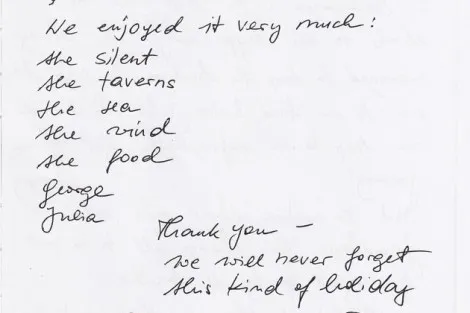 We enjoyed it very much:
the silent
the taverns
the sea
the wind
the food
George
Julia
Thank you –
we will never forget
this kind of holiday